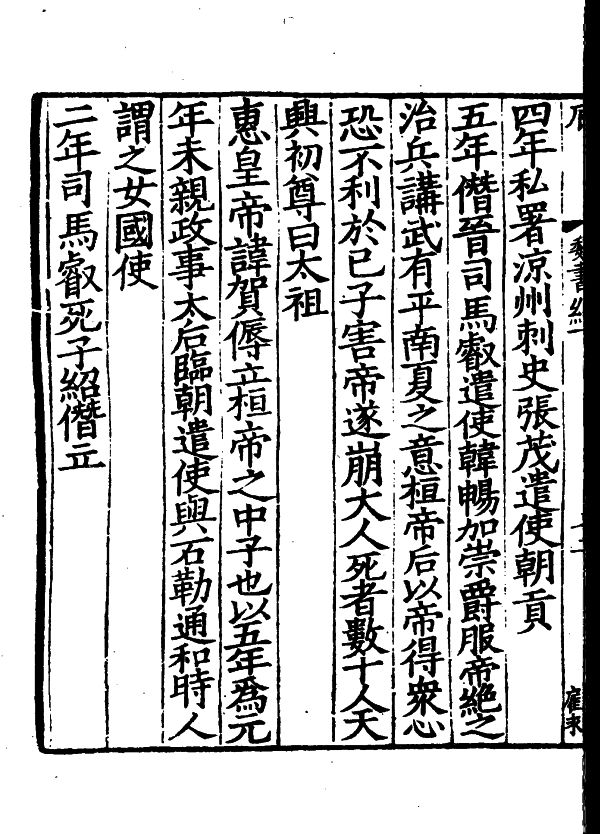 魏書紀一
四年私署涼州刺史張茂遣使朝貢
五年僭晉司馬叡遣使韓暢加崇爵服帝絶之
治兵講武有平南夏之意桓帝后以帝得衆心
恐不利於已子害帝遂崩大人死者數十人天
興初尊曰太祖
惠皇帝諱賀傉立桓帝之中子也以五年爲元
年未親政事太后臨朝遣使與石勒通和時人
謂之女國使
二年司馬叡死子紹僭立